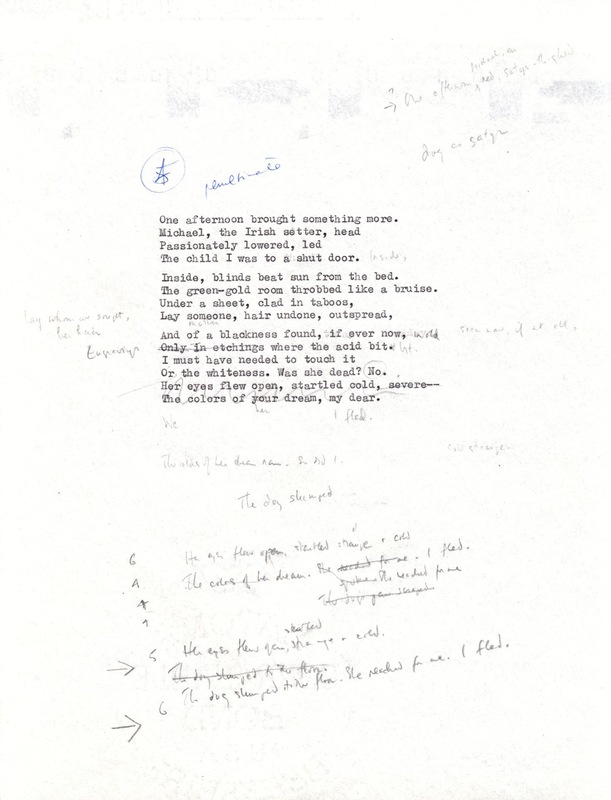 One afternoon red, satyr-thighed
dog as satyr
A
penultimate
One afternoon brought something more.
Michael, the Irish setter, head
Passionately lowered, led
The child I was to a shut door. Inside,
Inside, blinds beat sun from the bed.
The green-gold room throbbed like a bruise.
Under a sheet, clad in taboos,
Lay someone, hair undone, outspread,
Lay whom we sought,
her hair
Engravings
And of a blackness found, if ever now,
Only in etchings where the acid bit.
I must have needed to touch it
Or the whiteness. Was she dead? No.
Her eyes flew open, startled cold, severe--
The colors of your dream, my dear.
seen now, if at all,
her
I fled.
The colors of her dream. So did I.
The dog slumped
6 Her eyes flew open, startled strange & cold
A The colors of her dream. She reached for me. I fled.
She reached for me
5 Her eyes flew open, strange & cold.
startled
The dog slumped to the floor.
6 The dog slumped to the floor. She reached for me. I fled.